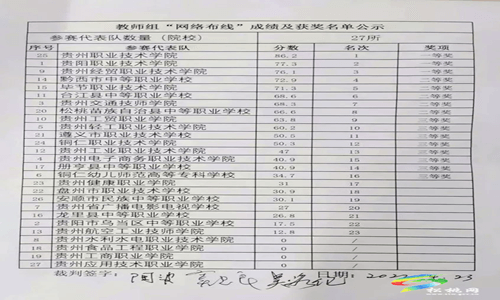 教师组“网络布线”成绩及获奖名单公示
参赛代表队数量（院校） 27所
序号 参赛代表队 分数 名次 奖项
25 贵州职业技术学院 86.2 1 一等奖
1 贵阳职业技术学院 77.3 2 一等奖
9 贵州经贸职业技术学院 76.1 3 一等奖
14 黔西市中等职业学校 72.9 4 二等奖
15 毕节职业技术学院 71.3 5 二等奖
11 台江县中等职业学校 68.6 6 二等奖
3 贵州交通技师学院 68.3 7 二等奖
20 松桃苗族自治县中等职业学校 66.6 8 二等奖
10 贵州工贸职业学院 63.8 9 三等奖
5 贵州轻工职业技术学院 60.2 10 三等奖
21 遵义市职业技术学校 50.5 11 三等奖
24 铜仁职业技术学院 50.3 12 三等奖
12 贵州工业职业技术学院 47 13 三等奖
4 贵州电子商务职业技术学院 40.9 14 三等奖
17 册亨县中等职业学校 40.9 15 三等奖
6 铜仁幼儿师范高等专科学校 34.7 16 三等奖
23 贵州健康职业学院 31 17
22 盘州市职业技术学校 30.9 18
26 安顺市民族中等职业学校 30.1 19
7 贵州省广播电影电视学校 27 20
16 龙里县中等职业学校 26.8 21
2 贵阳市乌当区中等职业学校 17.5 22
13 贵州航空工业技师学院 12.8 23
8 贵州水利水电职业技术学院 0 /
18 贵州食品工程职业学院 0 /
19 贵州工商职业学院 0 /
27 贵州应用技术职业学院 0 /
裁判签字： 日期：